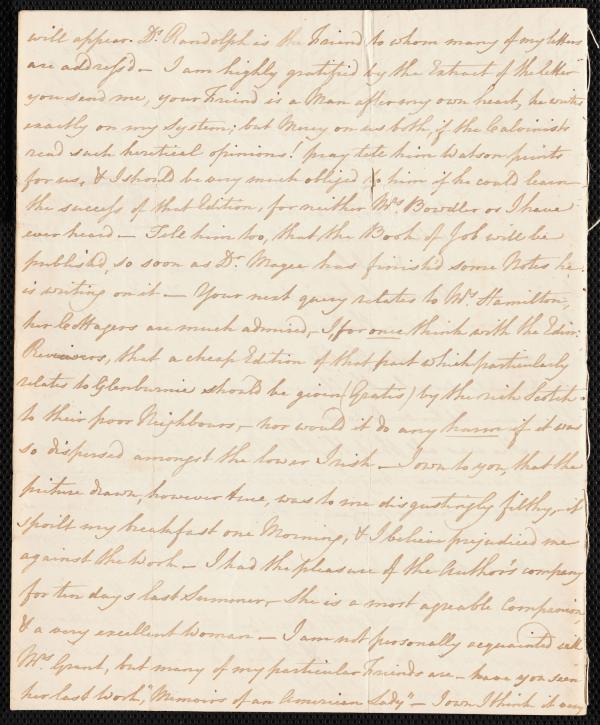 will appear. Dr. Randolph is the Friend to whom many of my letters
are address'd — I am highly gratified by the Extract of the letter
you send me, your Friend is a Man after my own heart, he writes
exactly on my System; but Mercy on us both, if the Calvinists
read such heretical opinions! pray tell him Watson prints
for us, & I should be very much obliged to him if he could learn
the success of that Edition, for neither Mrs. Bowdler or I have
ever heard — Tell him too, that the Book of Job will be
published, so soon as Dr. Magee has finished some Notes he
is writing on it — Your next query relates to Mrs. Hamilton,
her Cottagers are much admired, I, for once think with the Edinr.
Reviewers, that a cheap Edition of that part which particularly
relates to Glenburnie should be given (Gratis) by the rich Scotch
to their poor Neighbours, — nor would it do any harm if it was
so dispersed amongst the lower Irish — I own to you, that the
picture drawn, however true, was to me disgustingly filthy, — it
spoilt my breakfast one Morning, & I believe prejudiced me
against the Work — I had the pleasure of the Author's company
for ten days last Summer, — She is a most agreable Companion
& a very excellent Woman — I am not personally acquainted with
Mrs. Grant, but many of my particular Friends are — have you seen
her last Work, "Memoirs of an American Lady" — I own I think it very